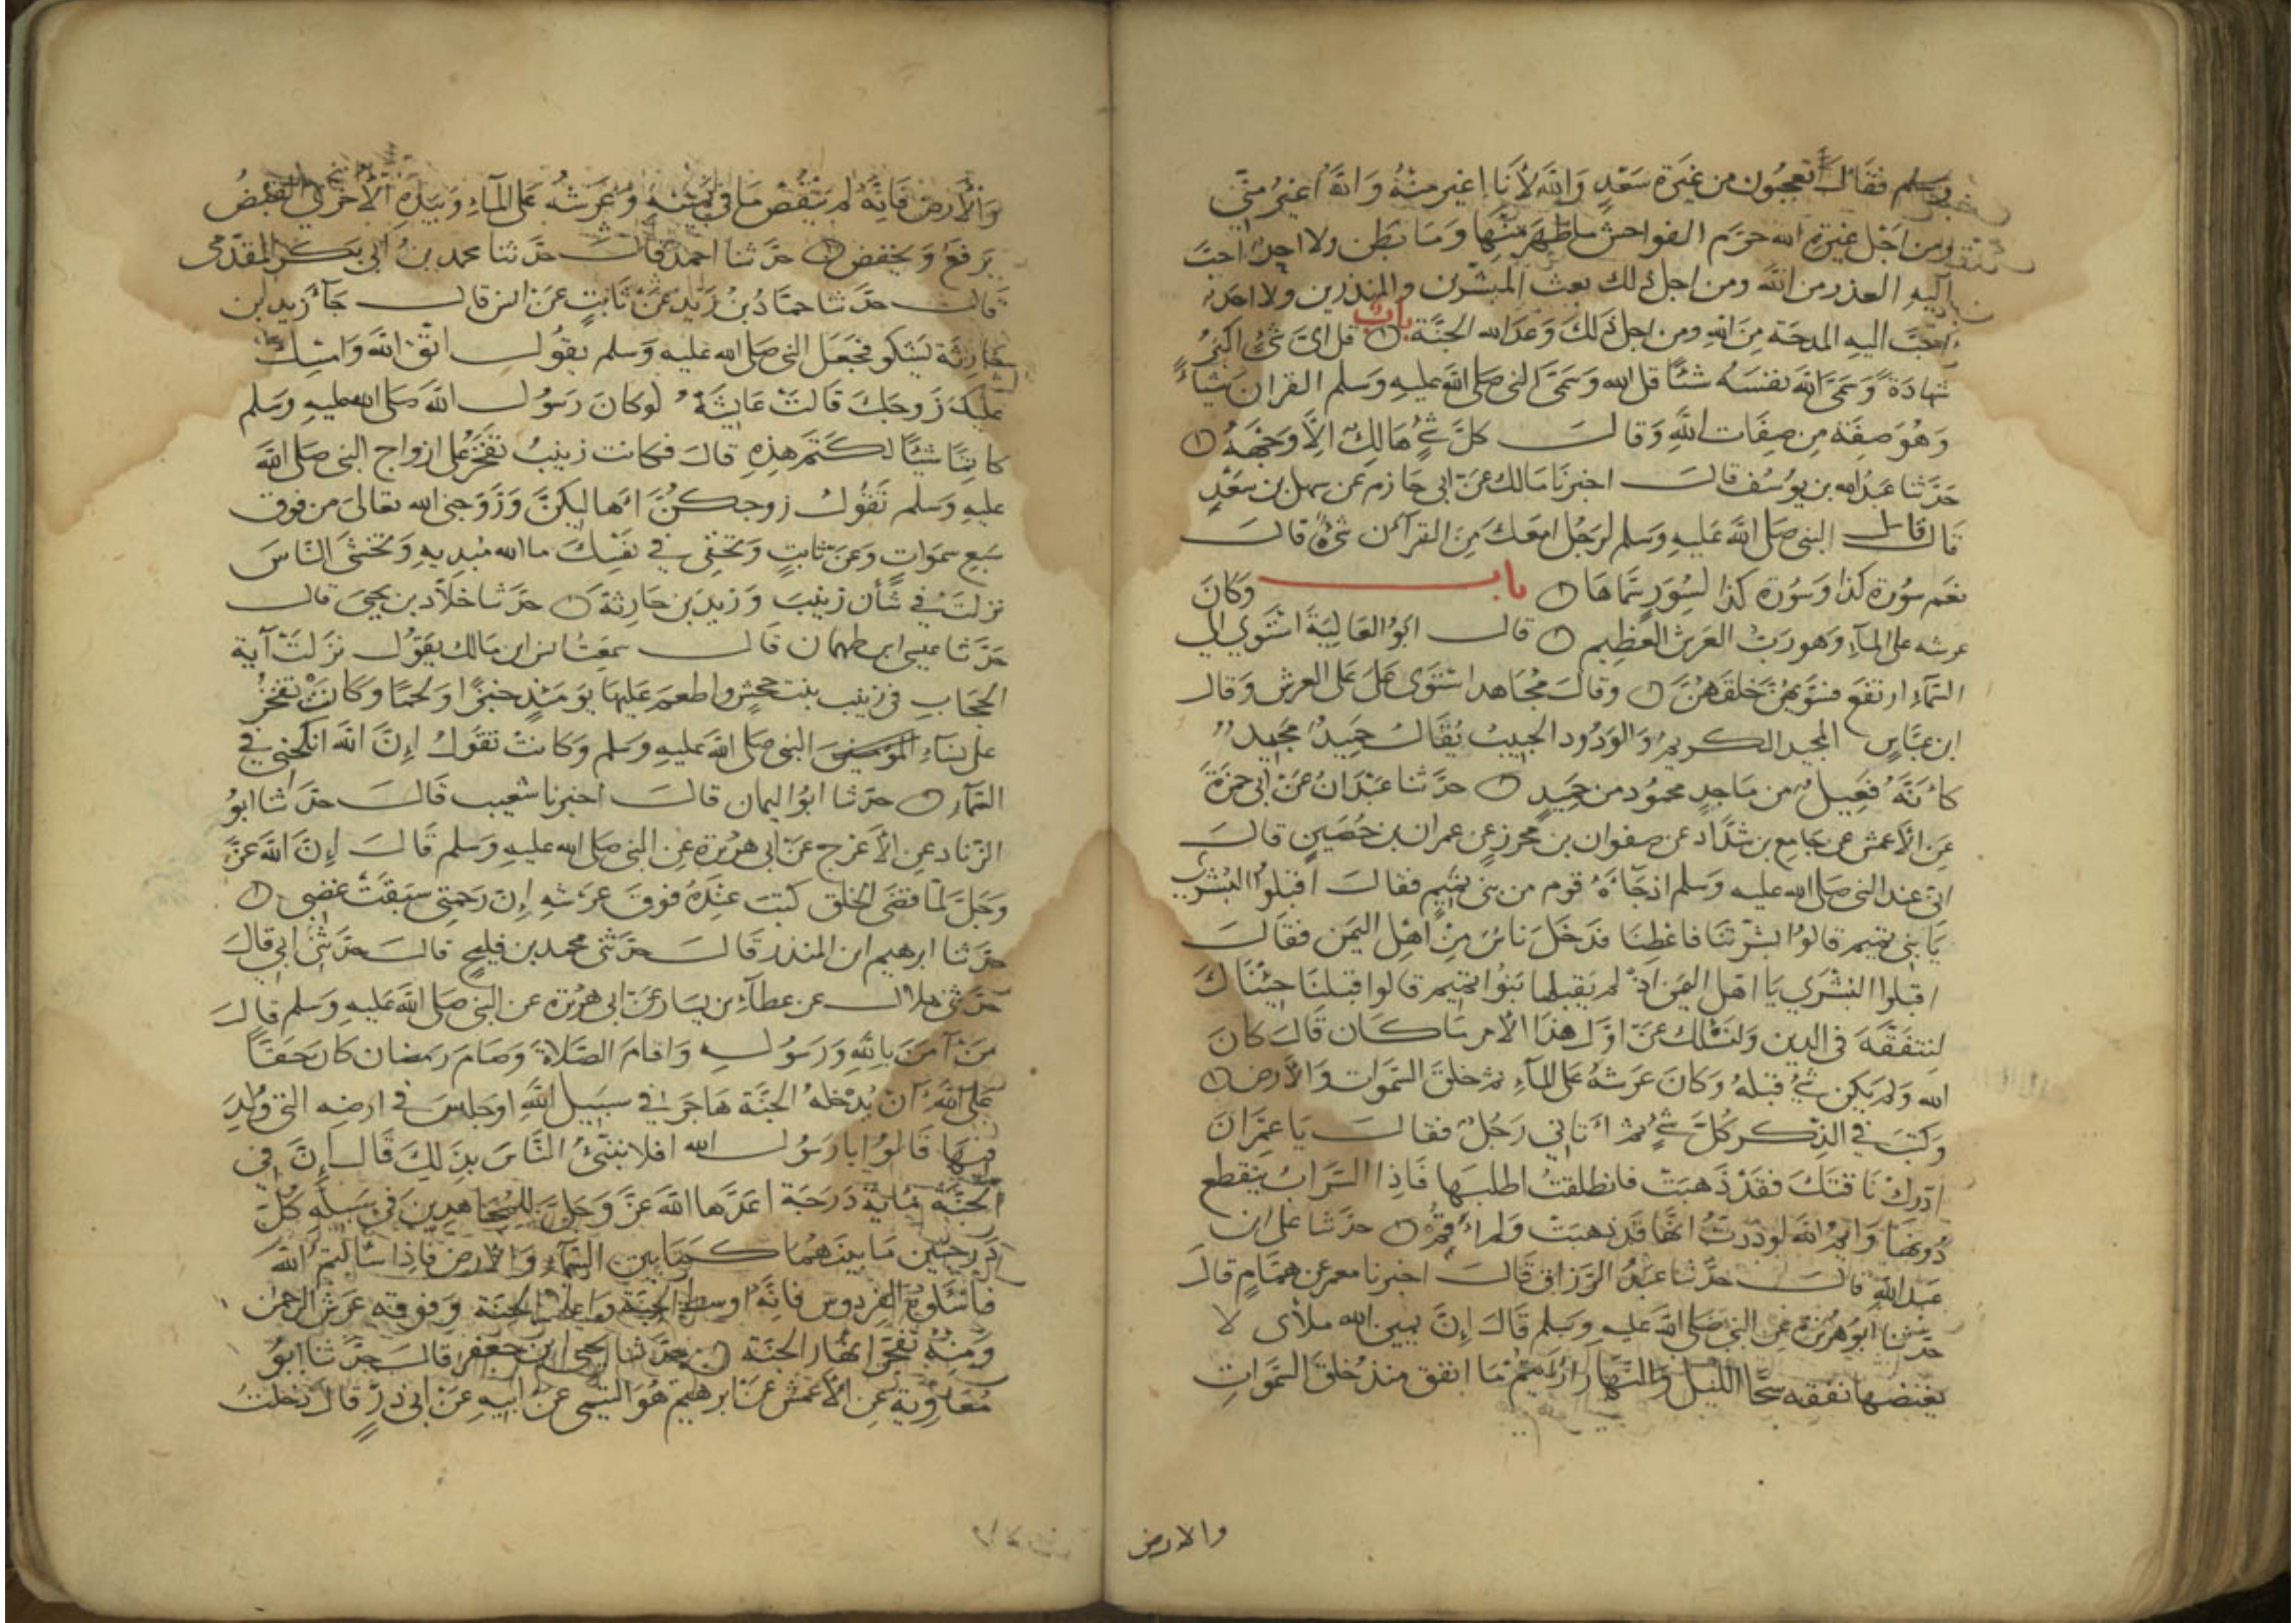 وسلم فقال أتعجبون من غيرة سعد والله لأنا اغير منه والله أغير مني
ومن اجل غيرة الله حرم الفواحش ما ظهر منها وما بطن ولا احد احب
اليه العذر من الله ومن اجل ذلك بعث المبشرين والمنذرين ولا احد
احب اليه المدحة من الله ومن اجل ذلك وعد الله الجنة باب قل اي شئ اكبر
شهادة وسمى الله نفسه شيئا قل الله وسمى النبي صلى الله عليه وسلم القرآن شيئا
وهو صفة من صفات الله وقال كل شئ هالك الا وجهه
حدثنا عبد الله بن يوسف قال اخبرنا مالك عن ابي حازم عن سهل بن سعد
قال قال النبي صلى الله عليه وسلم لرجل امعك من القرآن شئ قال
نعم سورة كذا وسورة كذا لسور سماها باب وكان
عرشه على الماء وهو رب العرش العظيم قال ابو العالية استوي الي
السماء ارتفع فسويهن خلقهن وقال مجاهد استوى علا على العرش وقال
ابن عباس المجيد الكريم والودود الحبيب يقال حميد مجيد
كأنه فعيل من ماجد محمود من حميد حدثنا عبدان عن ابي حمزة
عن الأعمش عن جامع بن شداد عن صفوان بن محرز عن عمران بن حصين قال
اني عند النبي صلى الله عليه وسلم اذ جاءه قوم من بني تميم فقال اقبلوا البشري
يا بني تميم قالوا بشرتنا فاعطنا فدخل ناس من اهل اليمن فقال
اقبلوا البشري يا اهل اليمن اذ لم يقبلها بنوا تميم قالوا قبلنا جيناك
لنتفقه في الدين ولنسئلك عن اول هذا الأمر ما كان قال كان
الله ولم يكن شئ قبله وكان عرشه على الماء ثم خلق السموات والأرض
وكتب في الذكر كل شئ ثم أتاني رجل فقال يا عمران
ادرك ناقتك فقد ذهبت فانطلقت اطلبها فاذا السراب ينقطع
دونها وايم الله لوددت انها قد ذهبت ولم أقم حدثنا علي ابن
عبد الله قال حدثنا عبد الرزاق قال اخبرنا معمر عن همام قال
حدثنا ابو هريرة عن النبي صلى الله عليه وسلم قال إن يمين الله ملأى لا
يغيضها نفقه سحا الليل والنهار ارأيتم ما انفق منذ خلق السموات
والارض
والأرض فانه لم ينقص ما في يمينه وعرشه على الماء وبيده الأخرى القبض
يرفع ويخفض حدثنا احمد قال حدثنا محمد بن ابي بكر المقدمى
قال حدثنا حماد بن زيد عن ثابت عن انس قال جآء زيد بن
حارثة يشكو فجعل النبي صلى الله عليه وسلم يقول اتق الله وامسك
عليك زوجك قالت عايشة لو كان رسول الله صلى الله عليه وسلم
كاتما شيئا لكتم هذه قال فكانت زينب تفخر على ازواج النبي صلى الله
عليه وسلم تقول زوجكن اهاليكن وزوجني الله تعالى من فوق
سبع سموات وعن ثابت وتخفي في نفسك ما الله مبديه وتخشى الناس
نزلت في شأن زينب وزيد بن حارثة حدثنا خلاد بن يحيى قال
حدثنا عيسى ابن طهمان قال سمعت انس ابن مالك يقول نزلت آية
الحجاب في زينب بنت جحش واطعم عليها يومئذ خبزا ولحما وكانت تفخر
على نساء النبي صلى الله عليه وسلم وكانت تقول إن الله انكحني في
السماء حدثنا ابو اليمان قال اخبرنا شعيب قال حدثنا ابو
الزناد عن الأعرج عن ابي هريرة عن النبي صلى الله عليه وسلم قال إن الله عز
وجل لما قضى الخلق كتب عنده فوق عرشه إن رحمتي سبقت غضبي
حدثنا ابرهيم ابن المنذر قال حدثني محمد بن فليح قال حدثني ابي قال
حدثني هلال عن عطاء بن يسار عن ابي هريرة عن النبي صلى الله عليه وسلم قال
من آمن بالله ورسوله واقام الصلاة وصام رمضان كان حقا
على الله أن يدخله الجنة هاجر في سبيل الله او جلس في ارضه التي ولد
فيها قالوا يا رسول الله افلا ننبئ الناس بذلك قال إن في
الجنة مائة درجة اعدها الله عز وجل للمجاهدين في سبيله كل
درجتين ما بينهما كما بين السماء والأرض فاذا سألتم الله
فاسئلوه الفردوس فانه اوسط الجنة واعلى الجنة وفوقه عرش الرحمن
ومنه تفجر انهار الجنة حدثنا يحيى ابن جعفر قال حدثنا ابو
معاوية عن الأعمش عن ابرهيم هو التيمي عن ابيه عن ابي ذر قال دخلت